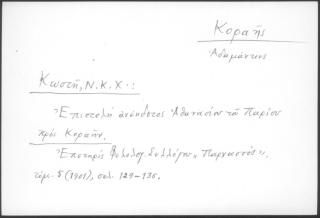 Κοραῆς
Ἀδαμάντιος
Κωστῆ, Ν.Κ.Χ.:
Ἐπιστολὴ ἀνέκδοτος Ἀθανασίου τοῦ Παρίου
πρὸς Κοραῆν.
Ἐπετηρὶς Φιλολογ. Συλλόγου „Παρνασσός",
τόμ. 5 (1901), σελ. 129-135.